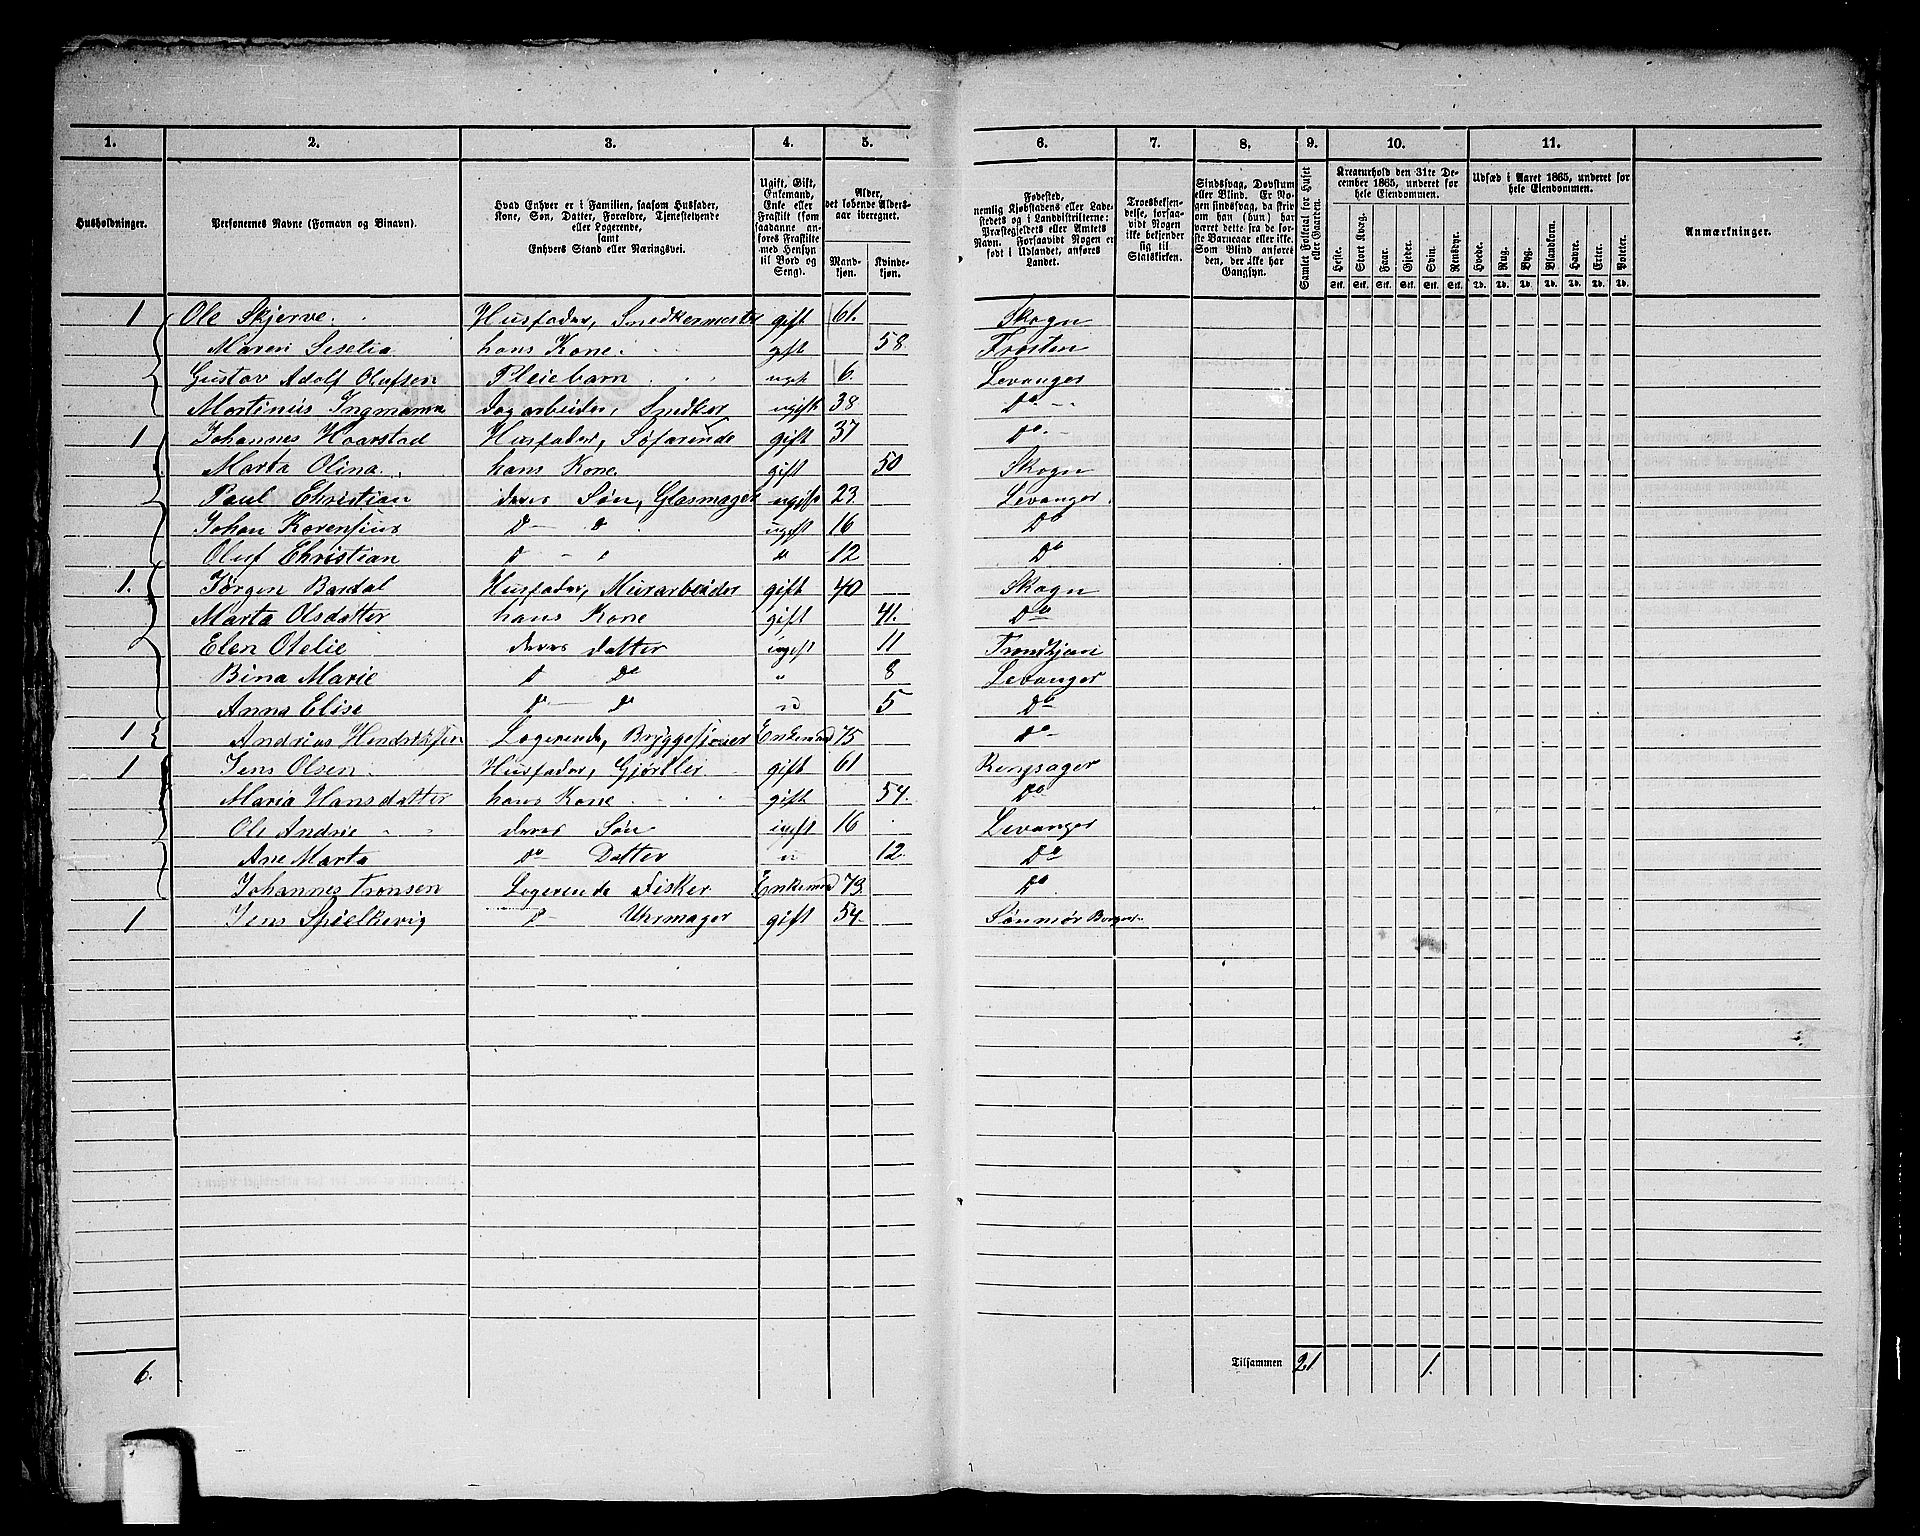 1. 2. 3. 4. 5. 6. 7. 8. 9. 10. 11.
Husholdninger.
Personernes Navne (Fornavn og Binavn).
Hvad Enhver er i Familien, saasom Husfader, Kone, Søn, Datter, Forældre, Tjenestetyende eller Logerende, samt Enhvers Stand eller Næringsvei.
Ugift, Gift, Enkemand, Enke eller Fraskilt (som saadanne anføres Fraskilte med Hensyn til Bord og Seng).
Alder, det løbende Aldersaar iberegnet.
Mandkjøn. Kvindekjøn.
Fødested, nemlig Kjøbstadens eller Ladestedets og i Landdistrikterne: Præstegjeldets eller Amtets Navn. Forsaavidt Nogen er født i Udlandet, anføres Landet.
Troesbekjendelse, forsaavidt Nogen ikke bekjender sig til Statskirken.
Sindssvag, Døvstum eller Blind. Er Nogen sindssvag, da skrives om han (hun) har været dette fra de første Barneaar eller ikke. Som Blind anføres den, der ikke har Gangsyn.
Samlet Folketal for Huset eller Gaarden.
Kreaturhold den 31te December 1865, underet for hele Eiendommen.
Heste. Stort Kvæg. Faar. Gjeder. Svin. Rensdyr.
Stk. Stk. Stk. Stk. Stk. Stk.
Udsæd i Aaret 1865, underet for hele Eiendommen.
Hvede. Rug. Byg. Blandkorn. Havre. Erter. Poteter.
Td. Td. Td. Td. Td. Td. Td.
Anmærkninger.
1 Ole Skjerve. Husfader, Snedkermester gift 61. Skogn
Maren Sesetia hans Kone. gift 58. Frosten
Gustav Adolf Olufsen Pleiebarn ugift 6. Levanger
Martinus Ingmann dagarbeider, Snedker ugift 38 Do
1 Johannes Haarstad Husfader, Søfarende gift 37 Do
Marta Olina hans Kone. gift 50 Skogn
Paul Christian deres Søn, Glasmager ugift 23. Levanger.
Johan ugift 16 Do
Oluf Christian " 12 Do
1. Jørgen Bardal Husfader, Murarbeider gift 40 Skogn
Marta Olsdatter hans Kone gift 41. Do
Elen Otelie deres datter ugift 11 Trondhjem
Bina Marie D Do " 8 Levanger
Anna Elise D D " 5 Do
1 Andreas Hendriksen Logerende, Enkemand 75 Do
1 Jens Olsen. Husfader, Gjørtler gift 61 Ringsager
Maria Hansdatter hans Kone gift 54. Do
Ole Andrie deres Søn ugift 16 Levanger
Ane Marta Do Datter " 12. Do
Johannes Tronsen Logerende Fisker Enkemand 73. Do
1 Jens Spielkevig D Uhrmager gift 54. Sønmør
6. Tilsammen 21 1.